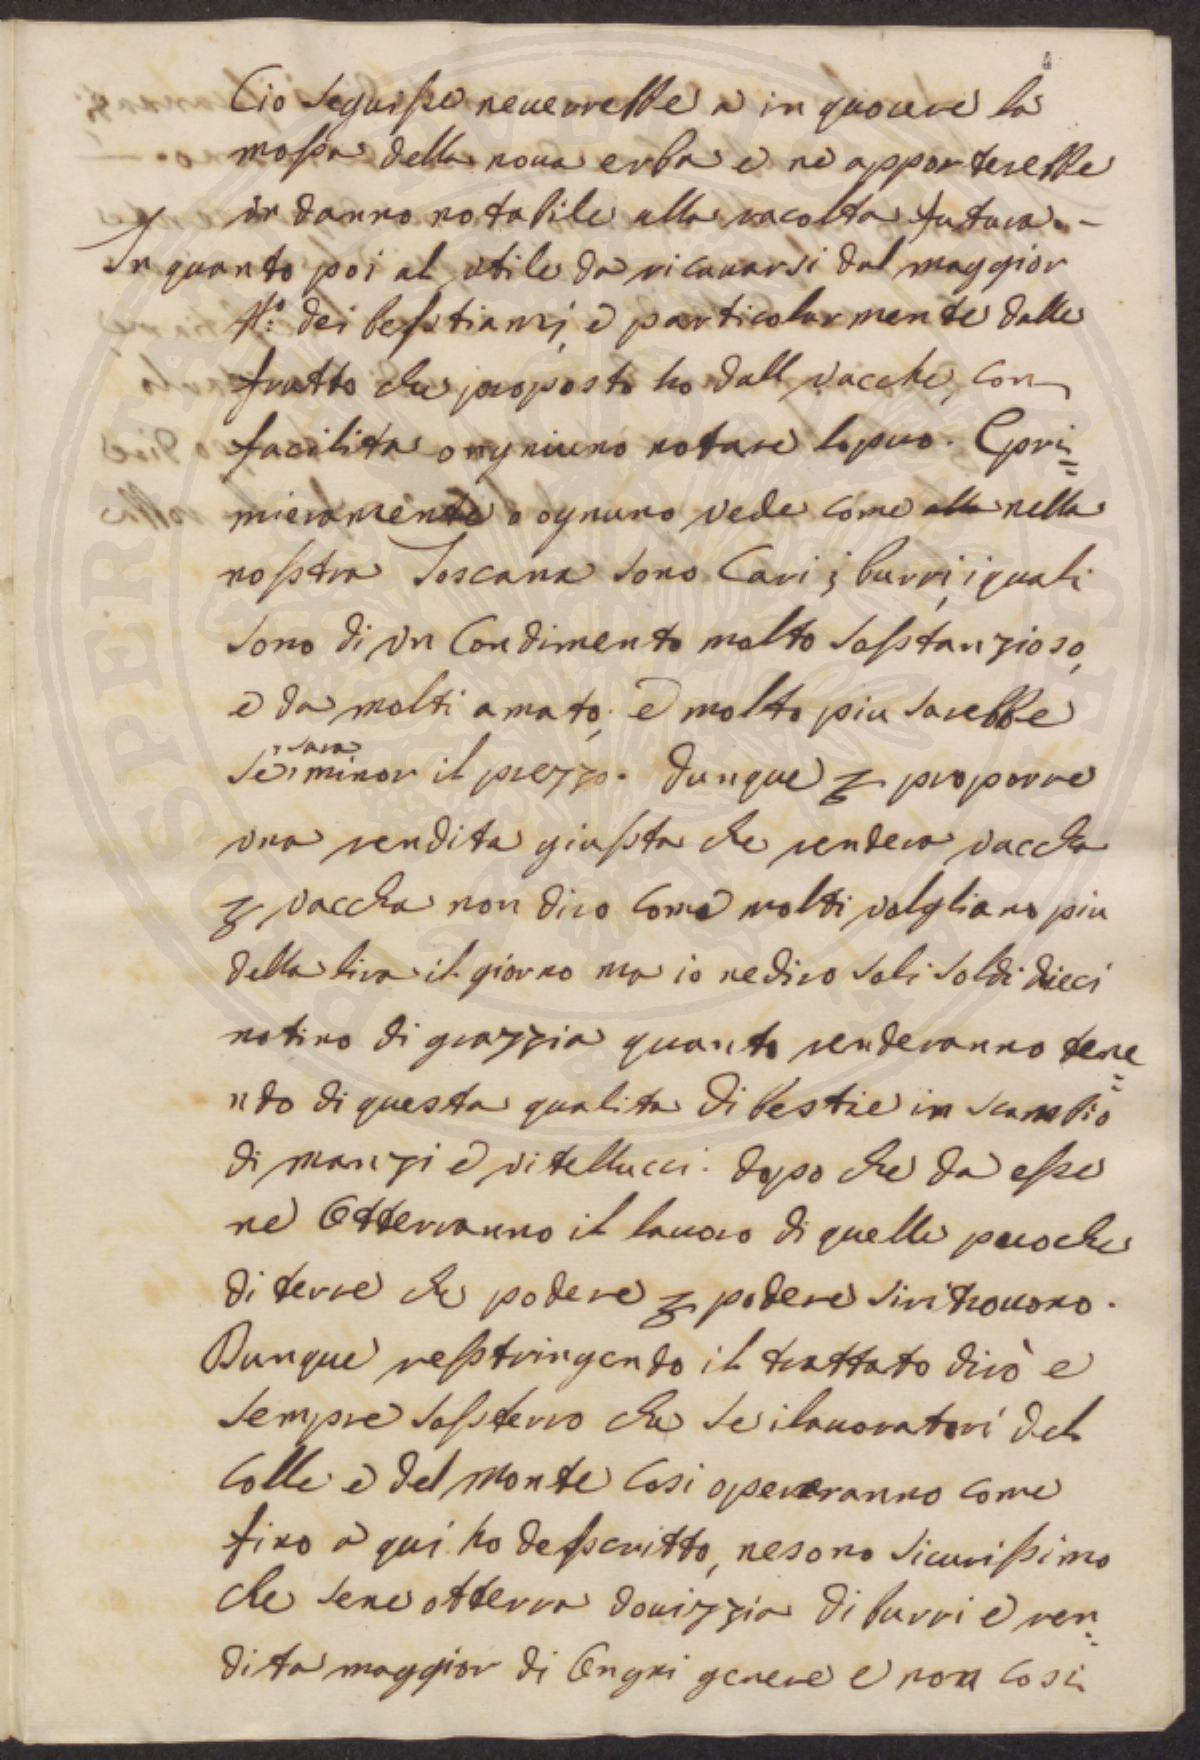 Cio seguisse neuerrebbe a in quocere la
mossa della noua erba e ne apporterebbe
un danno notabile alla racolta futura. –
In quanto poi al utile da ricauarsi dal maggior
N.o dei besstiami, e particolarmente dalle
frutto che proposto ho dall vacche, con
facilita ongniuno notare lopuo. E pri=
mieramente o ognuno vede come alla nella
nosstra Toscana sono Cari i burri, i quali
sono di un Condimento molto sosstanzioso,
e da molti amato, e molto piu sarebbe
se sara minor il prezzo. dunque p proporre
una rendita giussta che rendera vaccha
p vaccha non dico come molti volgliano piu
della lira il giorno ma io ne dico soli soldi dieci
notino di grazzia quanto renderanno tene=
ndo di questa qualita di bestie in scambio
di manzi e vitellucci. dopo che da esse
ne Otterranno il lauoro di quelle puoche
di terre che podere p podere si ritrouono.
Dunque resstringendo il trattato dirò e
sempre sossterro che se i lauoratori del
Colle e del Monte Cosi operarranno come
fino a qui ho desscritto, ne sono sicurissimo
che sene otterra douizzia di burri e ren=
dita maggior di Ongni genere e non Cosi
PROSPERITAS PUBLICAE